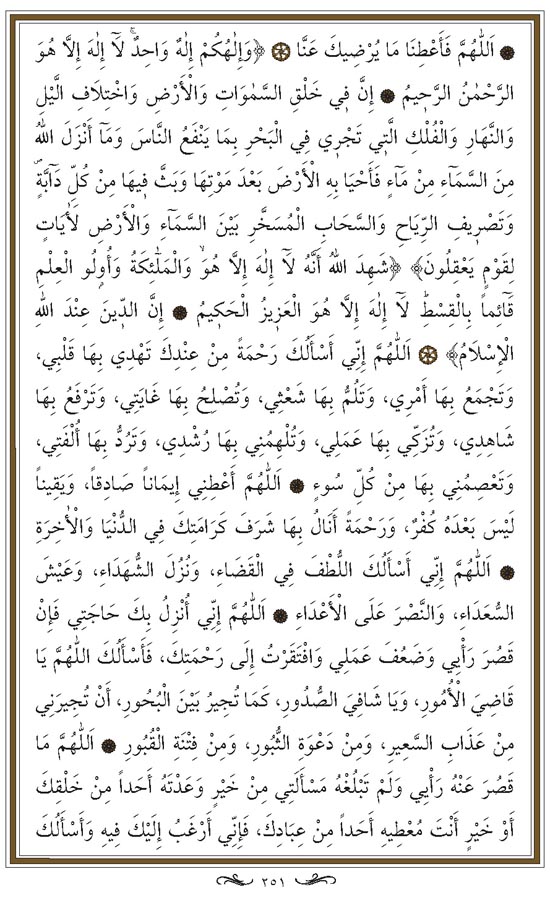 اَللّٰهُمَّ فَأَعْطِنَا مَا يُرْضِيكَ عَنَّا ﴿وَإِلٰهُكُمْ إِلٰهٌ وَاحِدٌۚ لَآ إِلٰهَ إِلَّا هُوَ
الرَّحْمٰنُ الرَّحِيمُ إِنَّ فِي خَلْقِ السَّمٰوَاتِ وَالْأَرْضِ وَاخْتِلَافِ الَّيْلِ
وَالنَّهَارِ وَالْفُلْكِ الَّتِي تَجْرِي فِي الْبَحْرِ بِمَا يَنْفَعُ النَّاسَ وَمَآ أَنْزَلَ اللهُ
مِنَ السَّمَآءِ مِنْ مَآءٍ فَأَحْيَا بِهِ الْأَرْضَ بَعْدَ مَوْتِهَا وَبَثَّ فِيهَا مِنْ كُلِّ دَآبَّةٍۖ
وَتَصْرِيفِ الرِّيَاحِ وَالسَّحَابِ الْمُسَخَّرِ بَيْنَ السَّمَآءِ وَالْأَرْضِ لَأٰيَاتٍ
لِقَوْمٍ يَعْقِلُونَ﴾ ﴿شَهِدَ اللهُ أَنَّهُ لَآ إِلٰهَ إِلَّا هُوَۙ وَالْمَلٰٓئِكَةُ وَأُولُو الْعِلْمِ
قَآئِماً بِالْقِسْطِۜ لَآ إِلٰهَ إِلَّا هُوَ الْعَزِيزُ الْحَكِيمُ إِنَّ الدِّينَ عِنْدَ اللهِ
الْإِسْلَامُ﴾ اَللّٰهُمَّ إِنِّي أَسْأَلُكَ رَحْمَةً مِنْ عِنْدِكَ تَهْدِي بِهَا قَلْبِي،
وَتَجْمَعُ بِهَا أَمْرِي، وَتَلُمُّ بِهَا شَعْثِي، وَتُصْلِحُ بِهَا غَايَتِي، وَتَرْفَعُ بِهَا
شَاهِدِي، وَتُزَكِّي بِهَا عَمَلِي، وَتُلْهِمُنِي بِهَا رُشْدِي، وَتَرُدُّ بِهَا أُلْفَتِي،
وَتَعْصِمُنِي بِهَا مِنْ كُلِّ سُوءٍ اَللّٰهُمَّ أَعْطِنِي إِيمَاناً صَادِقاً، وَيَقِيناً
لَيْسَ بَعْدَهُ كُفْرٌ، وَرَحْمَةً أَنَالُ بِهَا شَرَفَ كَرَامَتِكَ فِي الدُّنْيَا وَالْأٰخِرَةِ
اَللّٰهُمَّ إِنِّي أَسْأَلُكَ اللُّطْفَ فِي الْقَضَاءِ، وَنُزُلَ الشُّهَدَاءِ، وَعَيْشَ
السُّعَدَاءِ، وَالنَّصْرَ عَلَى الْأَعْدَاءِ اَللّٰهُمَّ إِنِّي أُنْزِلُ بِكَ حَاجَتِي فَإِنْ
قَصُرَ رَأْيِي وَضَعُفَ عَمَلِي وَافْتَقَرْتُ إِلَى رَحْمَتِكَ، فَأَسْأَلُكَ اللّٰهُمَّ يَا
قَاضِيَ الْأُمُورِ، وَيَا شَافِيَ الصُّدُورِ، كَمَا تُجِيرُ بَيْنَ الْبُحُورِ، أَنْ تُجِيرَنِي
مِنْ عَذَابِ السَّعِيرِ، وَمِنْ دَعْوَةِ الثُّبُورِ، وَمِنْ فِتْنَةِ الْقُبُورِ اَللّٰهُمَّ مَا
قَصُرَ عَنْهُ رَأْيِي وَلَمْ تَبْلُغْهُ مَسْأَلَتِي مِنْ خَيْرٍ وَعَدْتَهُ أَحَداً مِنْ خَلْقِكَ
أَوْ خَيْرٍ أَنْتَ مُعْطِيهِ أَحَداً مِنْ عِبَادِكَ، فَإِنِّي أَرْغَبُ إِلَيْكَ فِيهِ وَأَسْأَلُكَ
٢٥١